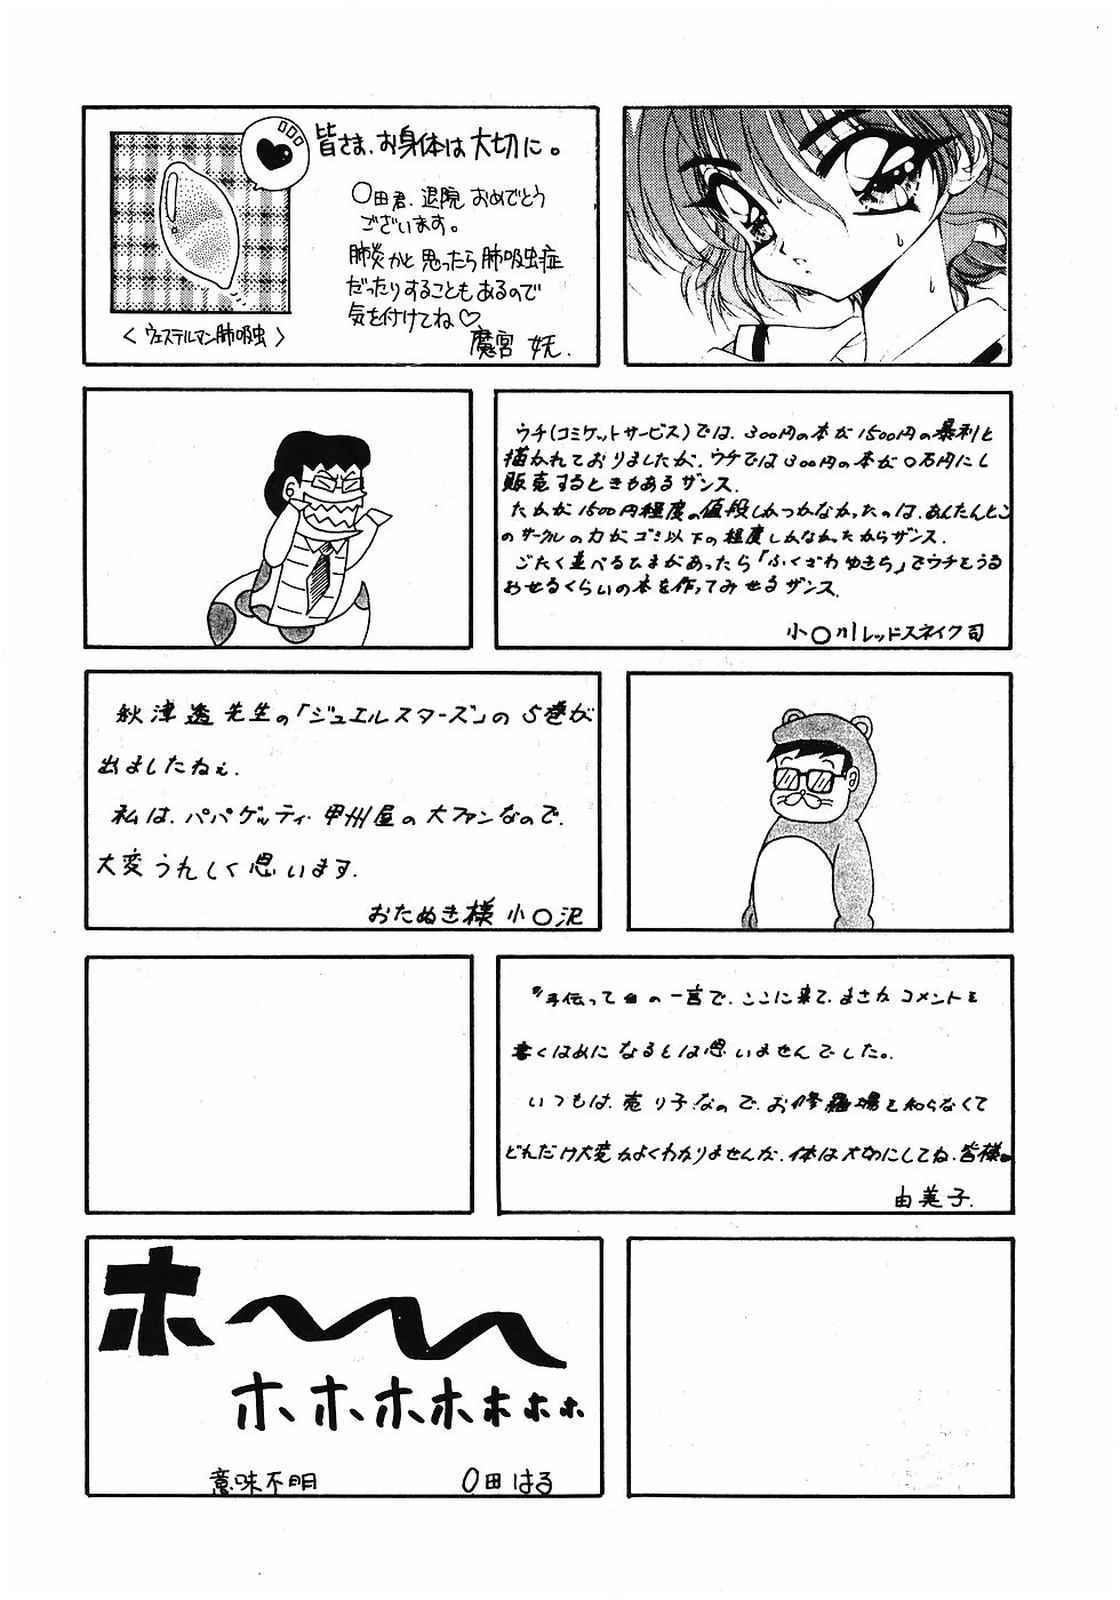 皆さま、お身体は大切に。
〇田君、退院おめでとう
ございます。
肺炎かと思ったら肺吸虫症
だったりすることもあるので
気を付けてね♡
魔宮 妖.
＜ウェステルマン肺吸虫＞
ウチ(コミケットサービス)では、300円の本が1500円の暴利と
描かれておりましたが、ウチでは300円の本が〇万円にし
販売するときもあるザンス.
たかが1500円程度の値段しかつかなかったのは、あんたんとこ
のサークルの力がゴミ以下の程度しかなかったからザンス.
ごたく並べるひまがあったら「ふくざわゆきち」でウチをうる
おせるくらいの本を作ってみせるザンス.
小〇川レッドスネイク司
秋津透先生の「ジュエルスターズ」の5巻が
出ましたねぇ.
私は、パパゲッティ・甲州屋の大ファンなので、
大変うれしく思います.
おたぬき様 小〇沢
手伝っての一言で、ここに来て、まさかコメントを
書くはめになるとは思いませんでした。
いつもは、売り子なので、お修羅場を知らなくて
どれだけ大変かよくわかりませんが、体は大切にしてね、皆様。
由美子.
ホ〜〜
ホホホホホホホ
意味不明 〇田はる